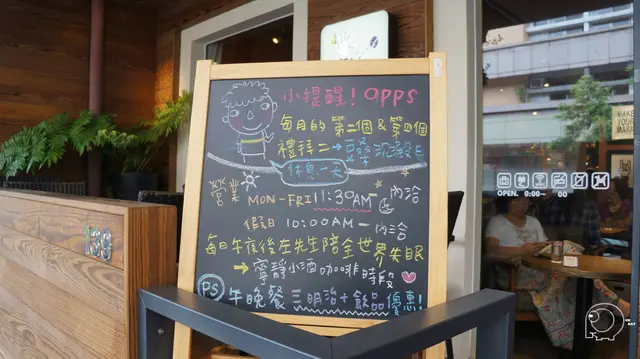 小提醒！opps
每月的第二個&第四個
禮拜二→豆桑沉澱日
休息一天
營業
MON-FRI 11:30AM 內洽
假日 10:00AM 一內洽
每日午夜後左先生陪全世界失眠
→寧靜小酒咖啡時段
PS 午晚餐三明治+飲品優惠!
139
OPEN. 0:00~ 00
MAKE
YOUR
MARK